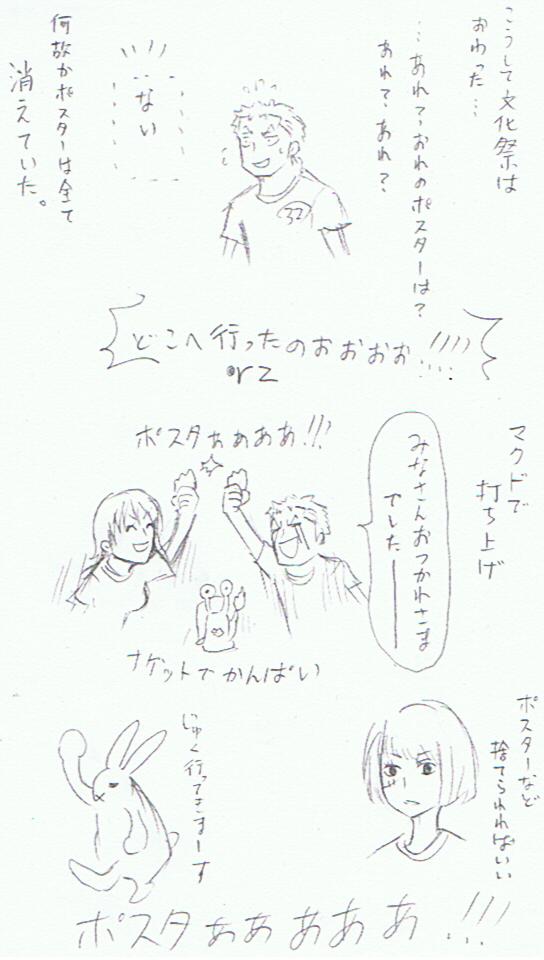 こうして文化祭は
おわった…
…あれ?おれのポスターは?
あれ?あれ?
32
…ない
何故かポスターは全て
消えていた。
どこへ行ったのおおおお!!!!
orz
マクドで
打ち上げ
みなさんおつかれさま
でしたーーー
ポスタぁぁぁぁ!!!
ナゲットでかんばい
ポスターなど
捨てられればいい
じゅく行ってきまーす
ポスタぁぁぁぁぁ!!!